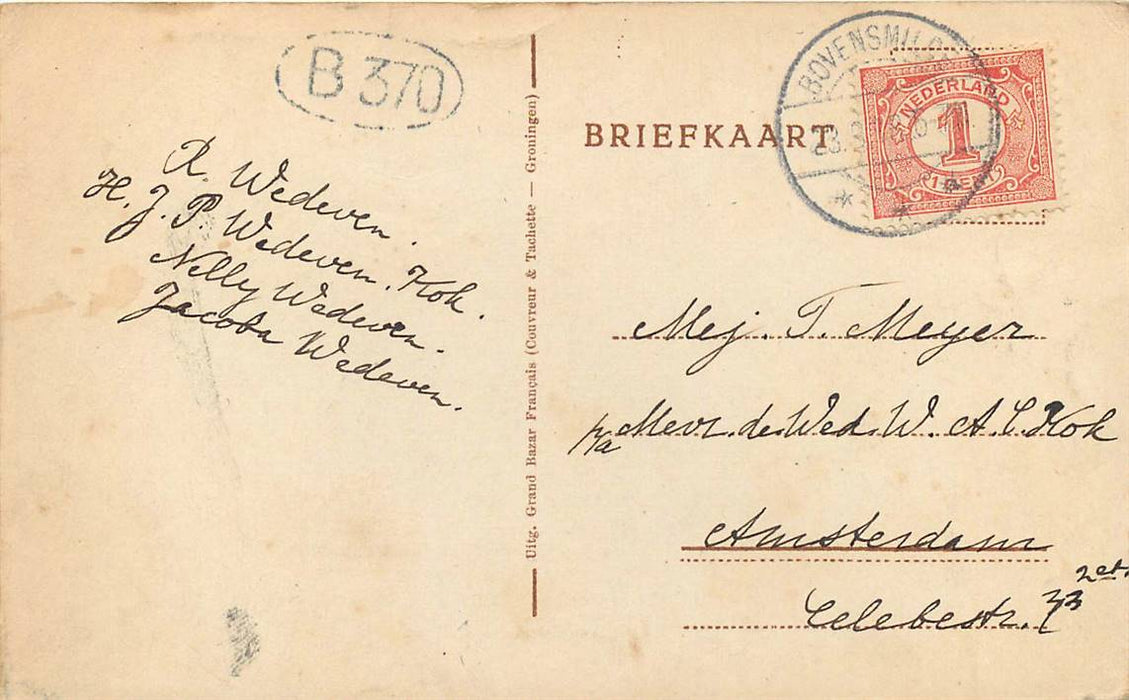 B 370
R. Wedeven.
H. J. P. Wedeven. Kok.
Nelly Wedeven.
Jacoba Wedeven.
Uitg. Grand Bazar Français (Couvreur & Tachette — Groningen)
BRIEFKAART
BOVENSMILD
NEDERLAND
1
1 CENT
Mej. T. Meyer
p/a Mevr. de Wed. W. A. C. Kok
Amsterdam
Celebestr. 2et.